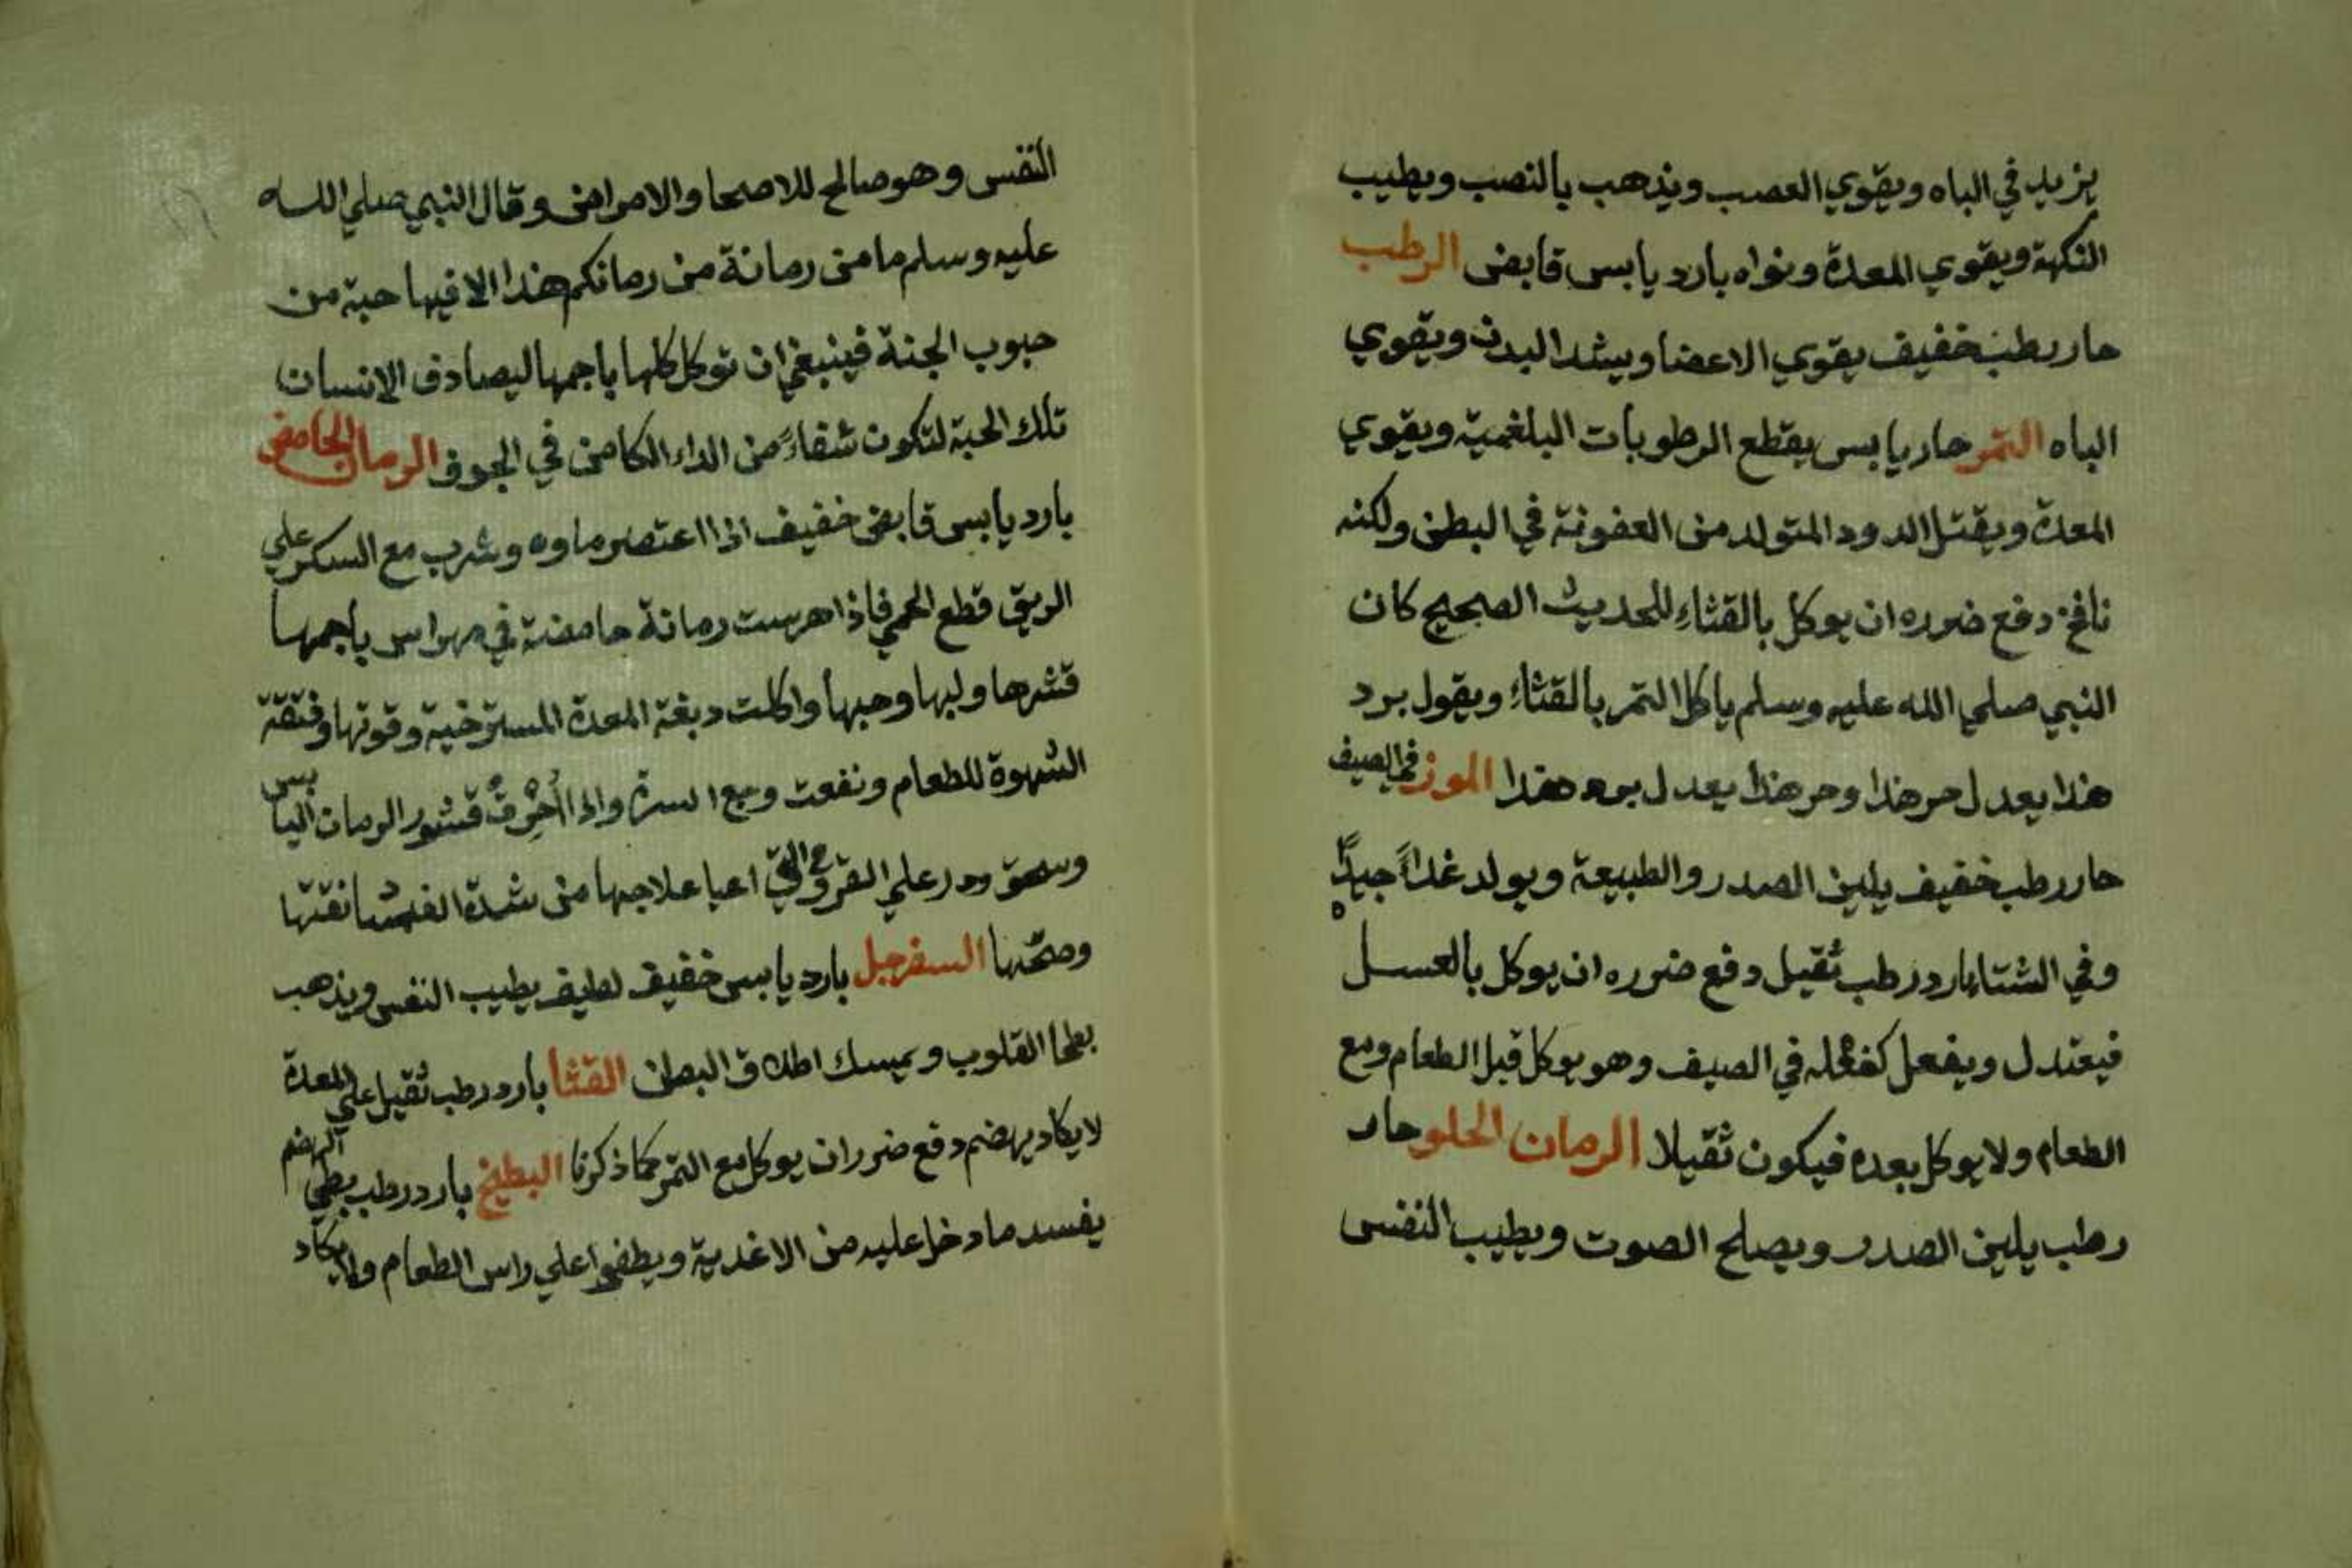 يزيد في الباه ويقوي العصب ويذهب بالنصب ويطيب
النكهة ويقوي المعدة ونواه بارد يابس قابض الرطب
حار رطب خفيف يقوي الاعضا ويشد البدن ويقوي
الباه التمر حار يابس يقطع الرطوبات البلغمية ويقوي
المعدة ويقتل الدود المتولد من العفونة في البطن ولكنه
نافخ دفع ضرره ان يوكل بالقثاء للحديث الصحيح كان
النبي صلي الله عليه وسلم ياكل التمر بالقثاء ويقول برد
هذا يعدل حر هذا وحر هذا يعدل برد هذا الموز في الصيف
حار رطب خفيف يلين الصدر والطبيعة ويولد غذاً جيداً
وفي الشتاء بارد رطب ثقيل دفع ضرره ان يوكل بالعسل
فيعتدل ويفعل كفعله في الصيف وهو يوكل قبل الطعام ومع
الطعام ولا يوكل بعده فيكون ثقيلا الرمان الحلو حار
رطب يلين الصدر ويصلح الصوت ويطيب النفس
النفس وهو صالح للاصحا والامراض وقال النبي صلي الله
عليه وسلم ما من رمانة من رمانكم هذا الا فيها حبة من
حبوب الجنة فينبغي ان توكل كلها باجمها ليصادف الانسان
تلك الحبة لتكون شفاءً من الداء الكامن في الجوف الرمان الحامض
بارد يابس قابض خفيف اذا اعتصر ماوه وشرب مع السكر علي
الريق قطع الحمي فاذا هرست رمانة حامضة في مهراس باجمها
قشرها ولبها وحبها واكلت دبغة المعدة المسترخية وقوتها وفتقة
الشهوة للطعام ونفعت السرة واذا أُحرقت قشور الرمان اليابس
وسحق وذر علي القروح التي اعيا علاجها من شدة نقتها
وصحّتها السفرجل بارد يابس خفيف لطيف يطيب النفس ويذهب
بطحا القلوب ويمسك اطلاق البطن القثا بارد رطب ثقيل علي المعدة
لا يكاد يهضم دفع ضرر ان يوكل مع التمر كما ذكرنا البطيخ بارد رطب بطي الهضم
يفسد ما دخل عليه من الاغدية ويطفوا علي راس الطعام ولا يكاد